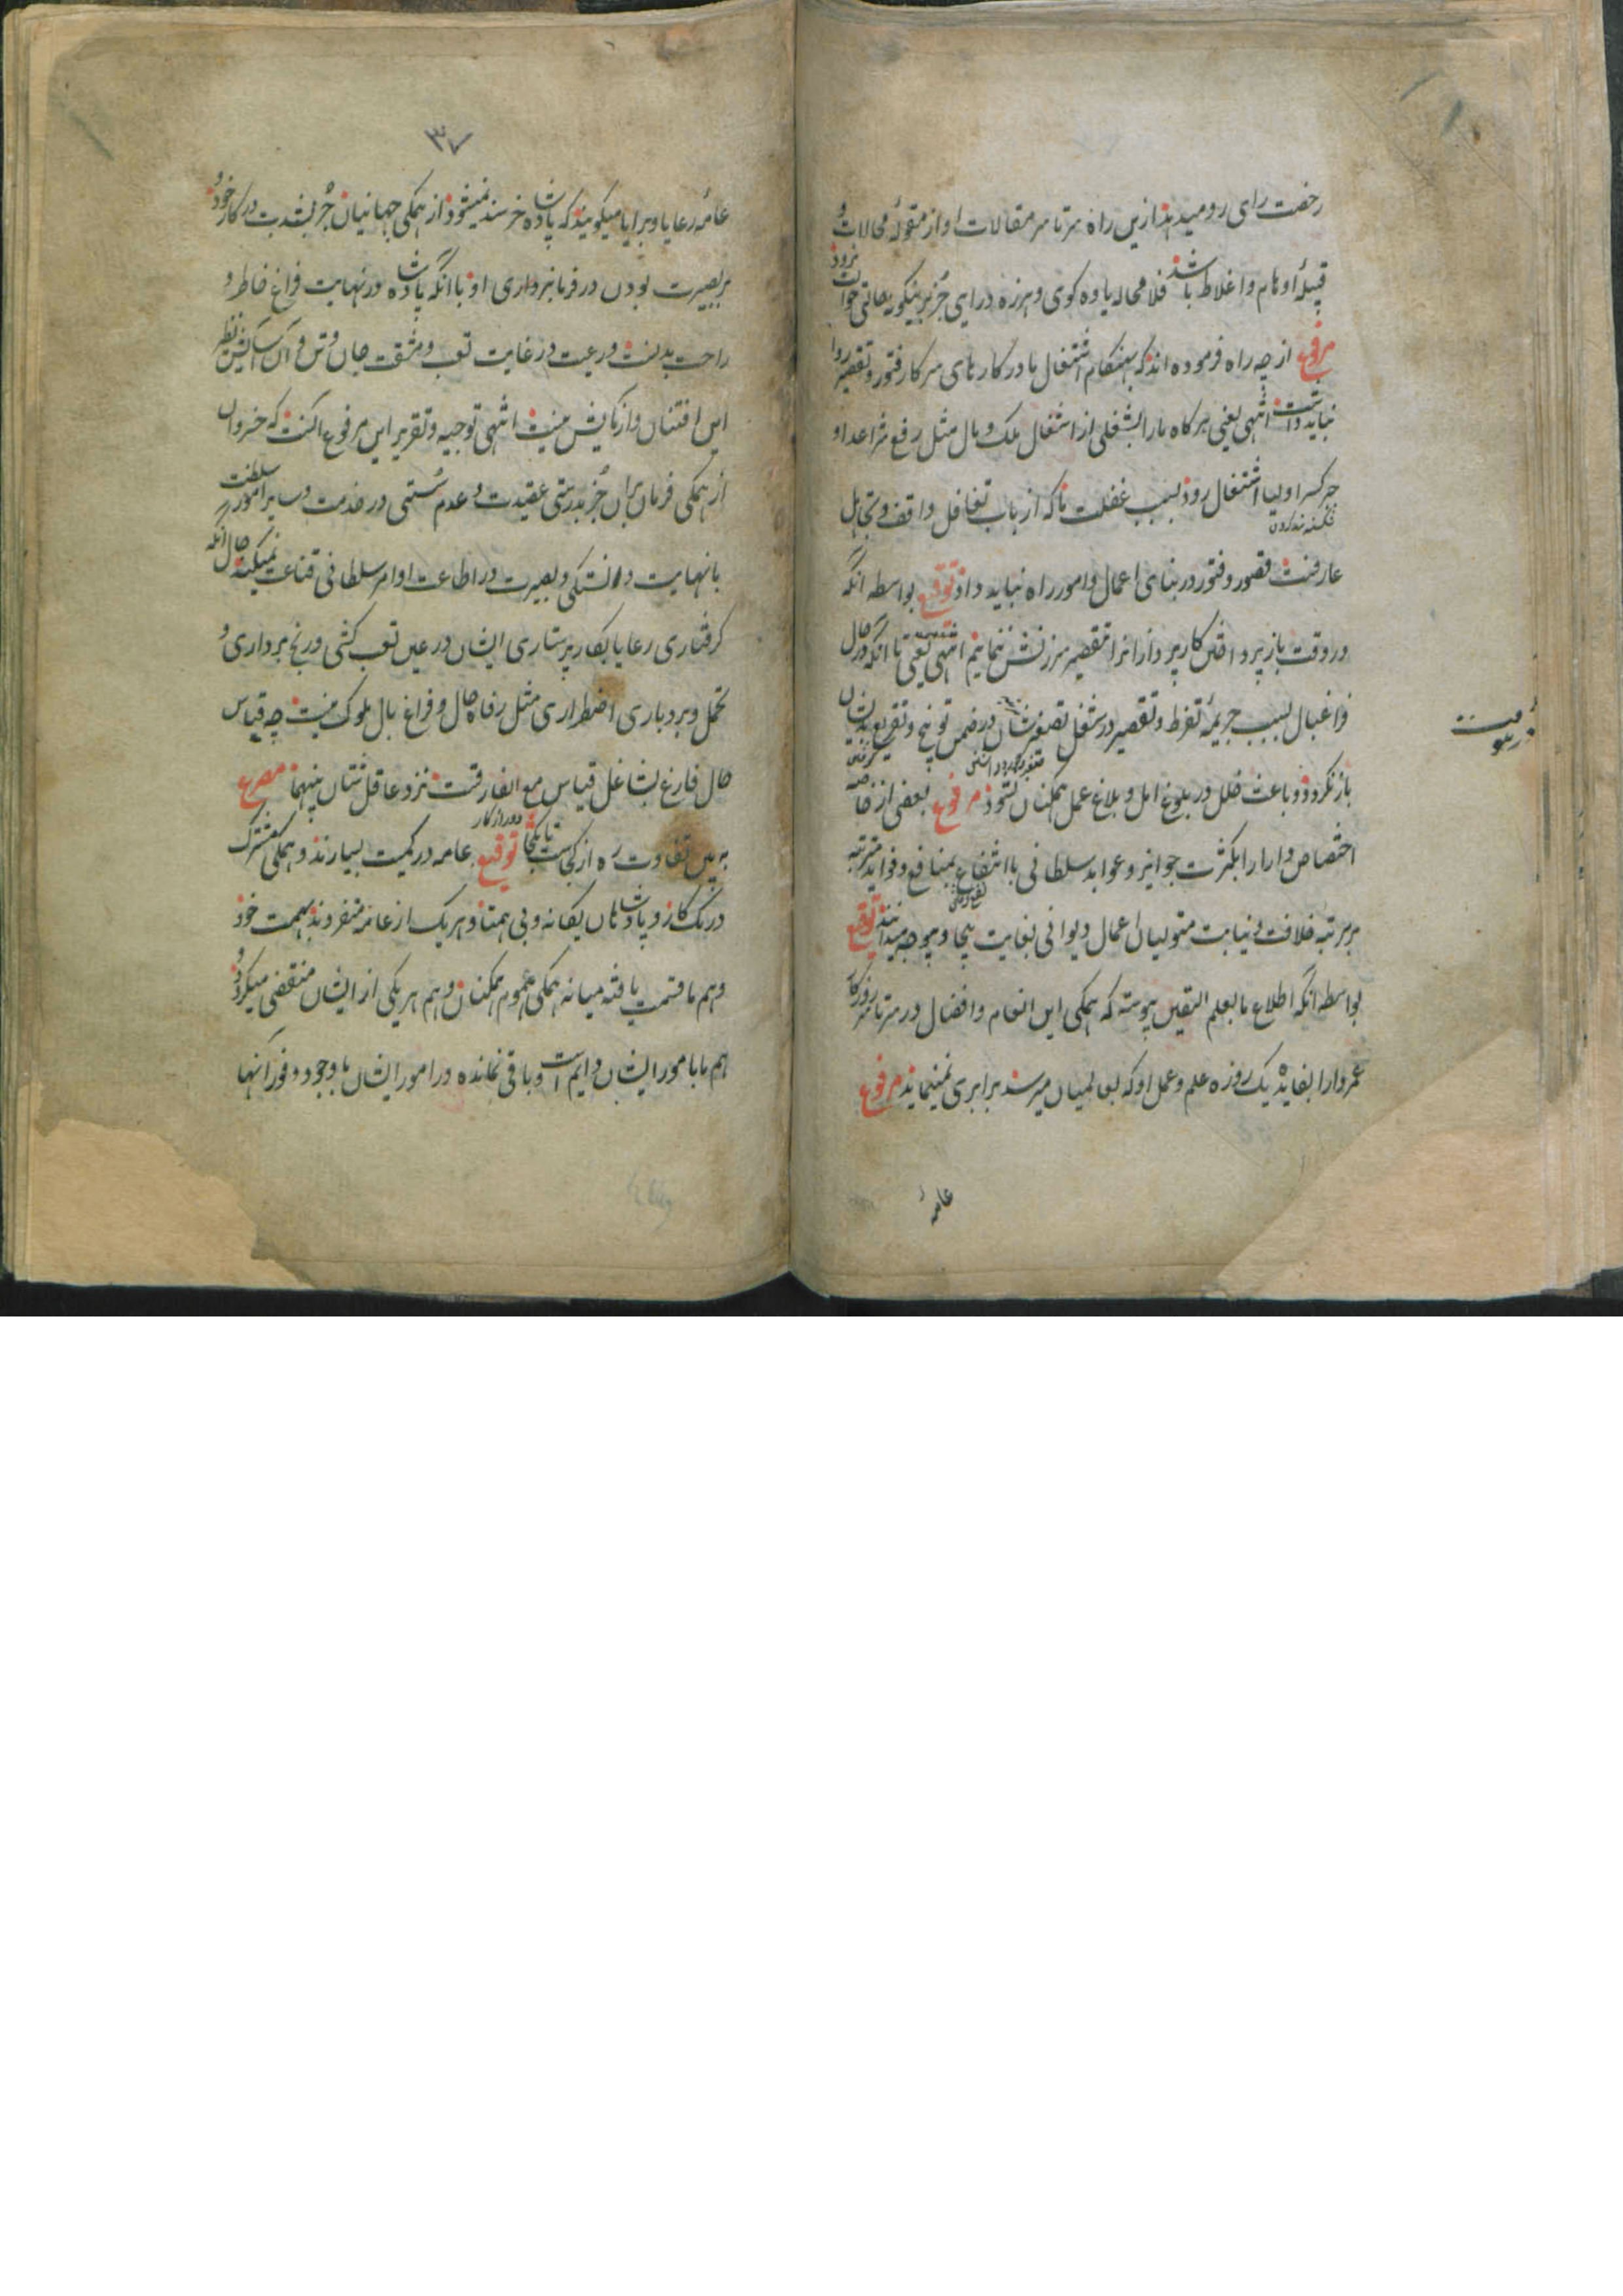 رخصت رای رو میدهد ازین راه سرتاسر مقالات او از مقوله محالات و
قبیله اوهام و اغلاط باشد فلامحاله یاوه کوی و هرزه درای جز بر نیکو
مرفوع از چه راه فرموده‌اند که بهنگام اشتغال ما در کارهای سرکار فتور و تقصیر روا
نباید داشت انتهی یعنی هر کاه ما را بشغلی از اشتغال ملک و مال مثل رفع شر اعدا و
اولیا اشتغال رود بسبب غفلت ما که از باب تغافل واقف و تجاهل
عارفست قصور و فتور در بنای اعمال و امور راه نباید داد توقیع بواسطه انکه
در وقت باز پرداختن کارپردازانرا بتقصیر سرزنش ننماییم انتهی یعنی تا انکه در حال
فراغبال بسبب جریمه تفرط و تقصیر در شغل در ضمن توبیخ و تقریع
باز نکردد و باعث خلل در بلوغ امل و بلاغ عمل همکنان نشود مرفوع بعضی از خاصه
اختصاص دارا را بکثرت جوایز و عواید سلطانی با انتفاع بمنافع و فواید مترتبه
بر مرتبه خلافت و نیابت متولیان اعمال دیوانی بغایت بیجا و بیوجه میدانند توقیع
بواسطه انکه اطلاع ما بعلم الیقین پیوسته که همکی این انعام و افضال در سرتاسر روزکار
عمر دارا بفایده یک روزه علم و عمل او که بعالمیان میرسد برابری نمینماید مرفوع
عامه
۳۷
عامه رعایا و برایا میکویند که پادشاه خرسند نمیشود از همکی جهانیان جز بشدت در کار خود و
بر بصیرت بودن در فرمانبرداری او با انکه پادشاه در نهایت فراغ خاطر و
راحت بدنست و رعیت در غایت تعب و مشقت جان و تن و آن آسایش نظر
این افتنان و ازمایش نیست انتهی توجیه و تقریر این مرفوع انست که خسروان
از همکی فرمان بران جز بدرستی عقیدت و عدم سستی در خدمت و سایر امور سلطنت
با نهایت دانستکی و بصیرت در اطاعت اوامر سلطانی قناعت نمیکنند حال انکه
کرفتاری رعایا بکار پرستاری ایشان در عین تعب کشی و رنج برداری و
تحمل و بردباری اضطراری مثل رفاه حال و فراغ بال ملوک نیست چه قیاس
حال فارغ بشاغل قیاس مع الفارقست نزد عاقل شتان بینهما مصرع
به بین تفاوت ره از کجاست تا بکجا توقیع عامه در کمیت بسیارند و همکی مشترک
در یک کار و پادشاهان یکانه و بی همتا و هر یک از عامه متفردند بهمت خود
و هم ما قسمت یافته میانه همکی عموم همکنان و هم هر یکی از ایشان منقضی میکردد و
هم ما بامور ایشان دایم است و باقی نمانده در امور ایشان با وجود وفور انها